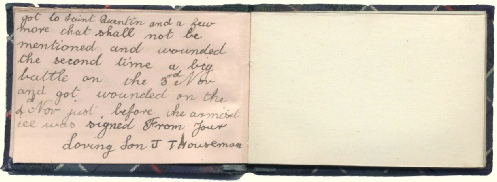 got to Saint Quentin and a few
more chat shall not be
mentioned and wounded
the second time a big
battle on the 3rd Nov
and got wounded on the
4th Nov just before the armist
ice was signed From Your
Loving Son J T Houseman